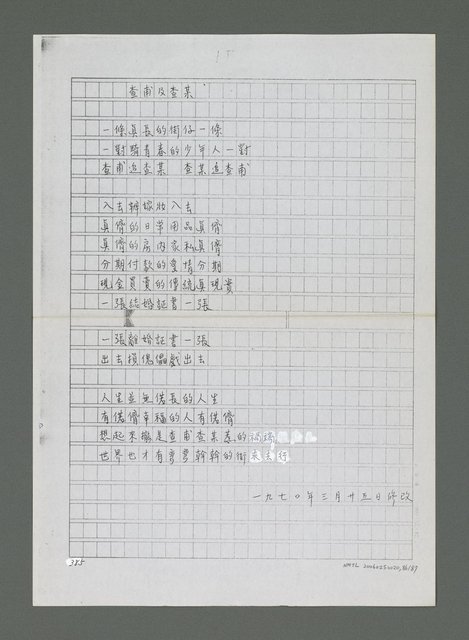 查甫及查某
一條真長的街仔一條
一對騎青春的少年人一對
查甫追查某 查某追查甫
入去辦嫁妝入去
真儕的日常用品真儕
真儕的房內家私真儕
分期付款的愛情分期
現金買賣的傳統真現實
一張結婚証書一張
一張離婚証書一張
出去損傀儡戲出去
人生並無偌長的人生
有偌儕幸福的人有偌儕
想起來攏是查甫查某惹的
世界也才有彎彎幹幹的街來去行
一九七〇年三月廿五日修改
385
NMTL 20060250020,86/87